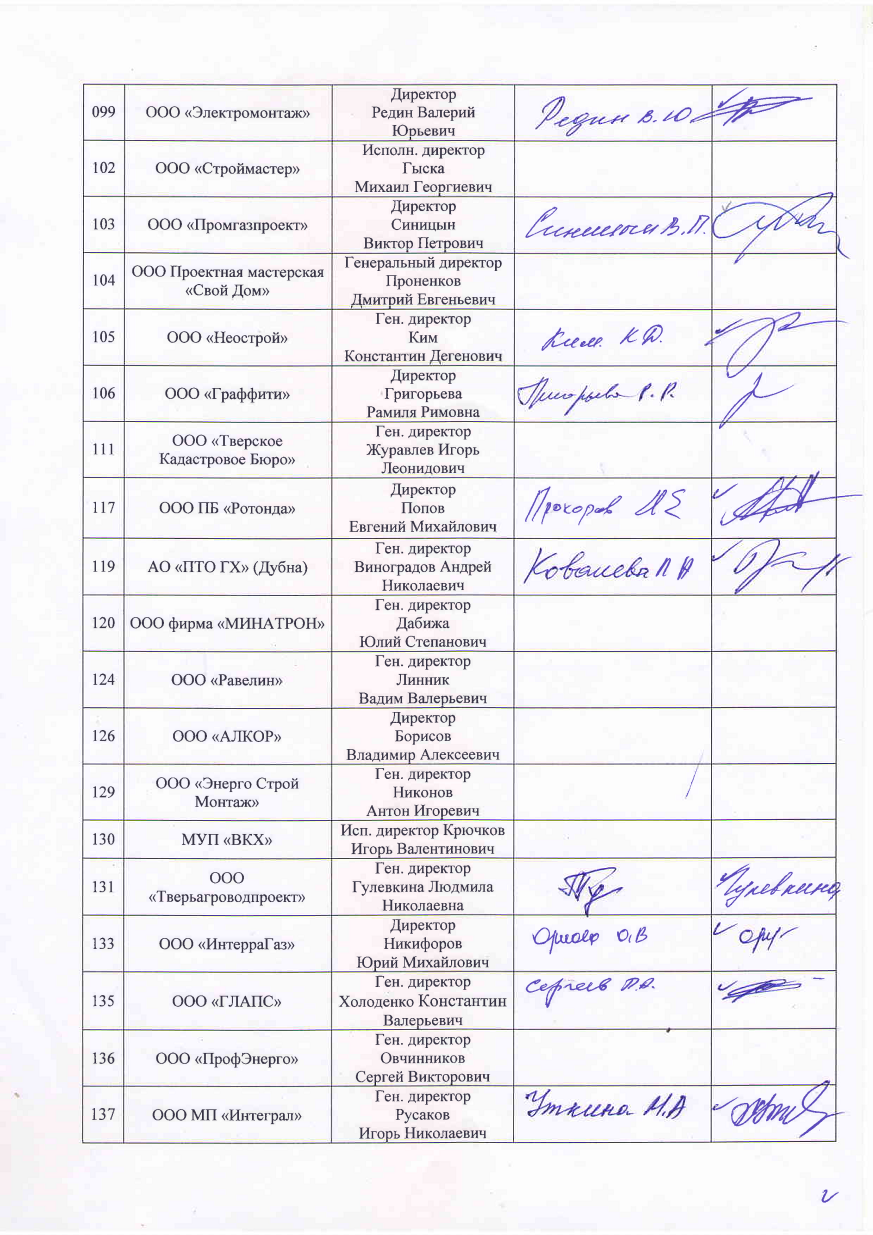 099
ООО «Электромонтаж»
Директор
Редин Валерий
Юрьевич
Редин В.Ю
102
ООО «Строймастер»
Исполн. директор
Гыска
Михаил Георгиевич
103
ООО «Промгазпроект»
Директор
Синицын
Виктор Петрович
Синицын В.П.
104
ООО Проектная мастерская
«Свой Дом»
Генеральный директор
Проненков
Дмитрий Евгеньевич
105
ООО «Неострой»
Ген. директор
Ким
Константин Дегенович
Ким К Д.
106
ООО «Граффити»
Директор
Григорьева
Рамиля Римовна
Григорьева Р. Р.
111
ООО «Тверское
Кадастровое Бюро»
Ген. директор
Журавлев Игорь
Леонидович
117
ООО ПБ «Ротонда»
Директор
Попов
Евгений Михайлович
Прохоров
119
АО «ПТО ГХ» (Дубна)
Ген. директор
Виноградов Андрей
Николаевич
Ковалева
120
ООО фирма «МИНАТРОН»
Ген. директор
Дабижа
Юлий Степанович
124
ООО «Равелин»
Ген. директор
Линник
Вадим Валерьевич
126
ООО «АЛКОР»
Директор
Борисов
Владимир Алексеевич
129
ООО «Энерго Строй
Монтаж»
Ген. директор
Никонов
Антон Игоревич
130
МУП «ВКХ»
Исп. директор Крючков
Игорь Валентинович
131
ООО
«Тверьагроводпроект»
Ген. директор
Гулевкина Людмила
Николаевна
Гулевкина
133
ООО «ИнтерраГаз»
Директор
Никифоров
Юрий Михайлович
О.В
135
ООО «ГЛАПС»
Ген. директор
Холоденко Константин
Валерьевич
Сергеев
136
ООО «ПрофЭнерго»
Ген. директор
Овчинников
Сергей Викторович
137
ООО МП «Интеграл»
Ген. директор
Русаков
Игорь Николаевич
Уткина М.А